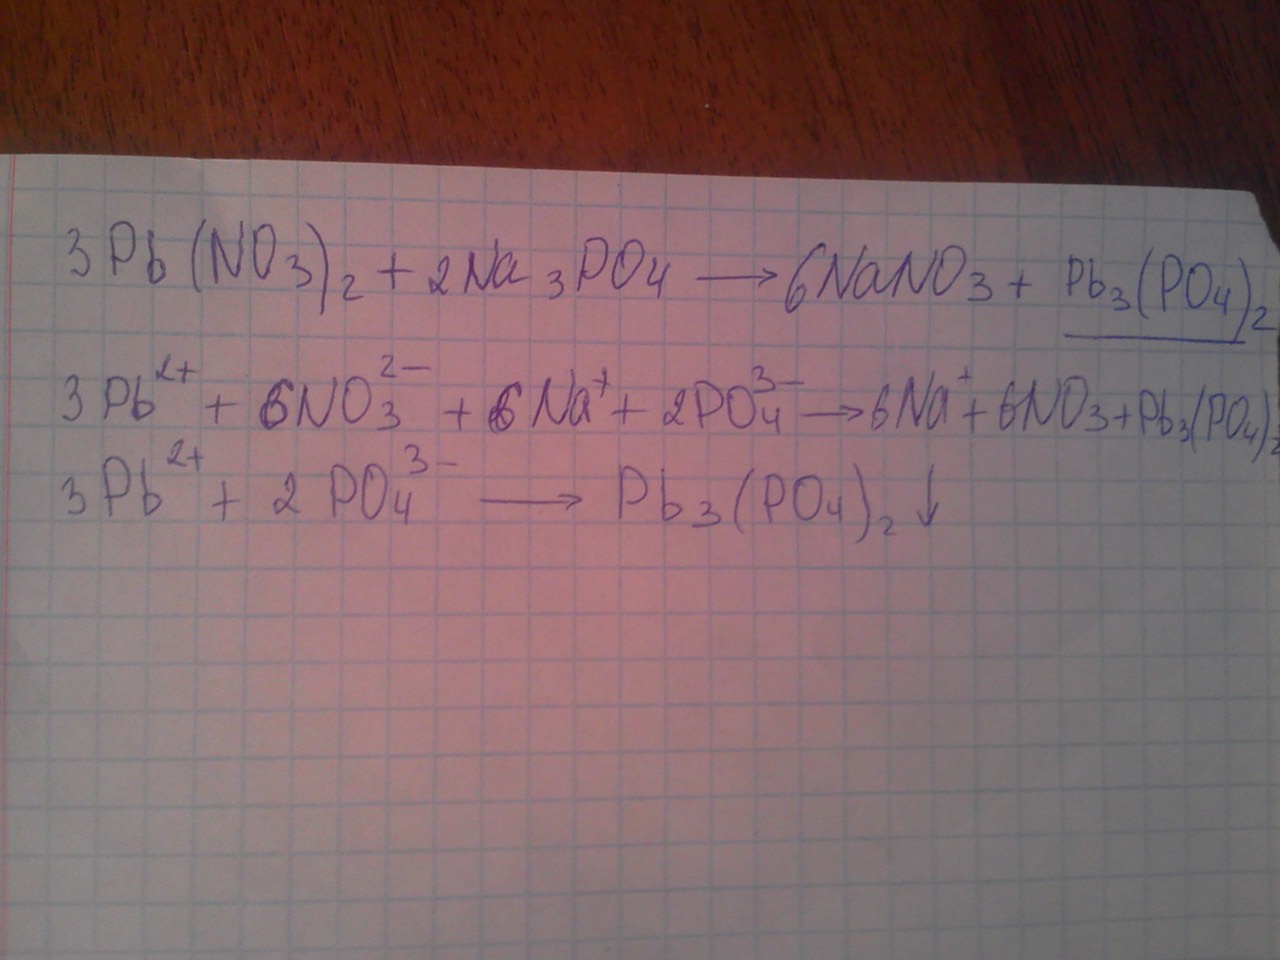 3Pb(NO₃)₂ + 2Na₃PO₄ → 6NaNO₃ + Pb₃(PO₄)₂
3Pb²⁺ + 6NO₃²⁻ + 6Na⁺ + 2PO₄³⁻ → 6Na⁺ + 6NO₃ + Pb₃(PO₄)₂
3Pb²⁺ + 2PO₄³⁻ → Pb₃(PO₄)₂↓